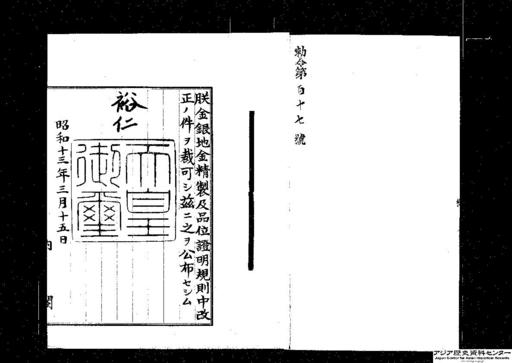 勅令第百十七號
朕金銀地金精製及品位證明規則中改
正ノ件ヲ裁可シ茲ニ之ヲ公布セシム
裕仁
天皇御璽
昭和十三年三月十五日
内閣
アジア歴史資料センター
Japan Center for Asian Historical Records